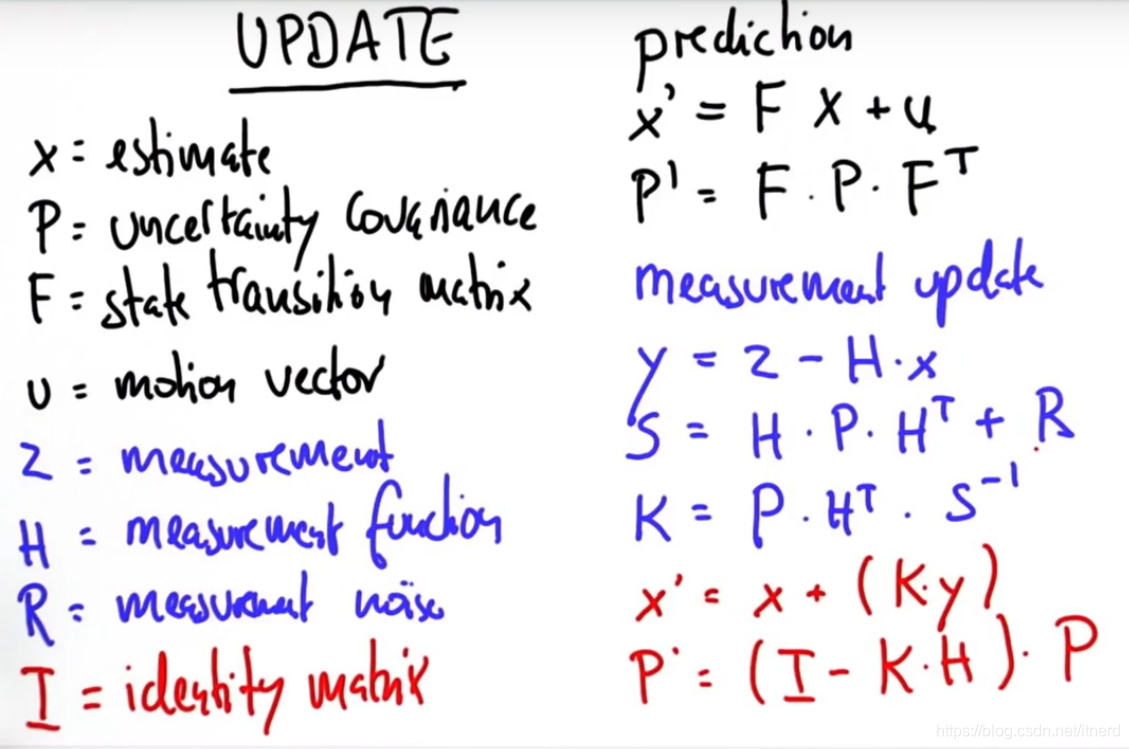 UPDATE
x = estimate
P = uncertainty covariance
F = state transition matrix
u = motion vector
z = measurement
H = measurement function
R = measurement noise
I = identity matrix
prediction
x' = F x + u
P' = F · P · Fᵀ
measurement update
y = z - H · x
S = H · P · Hᵀ + R
K = P · Hᵀ · S⁻¹
x' = x + (K · y)
P' = (I - K · H) · P
https://blog.csdn.net/itnerd